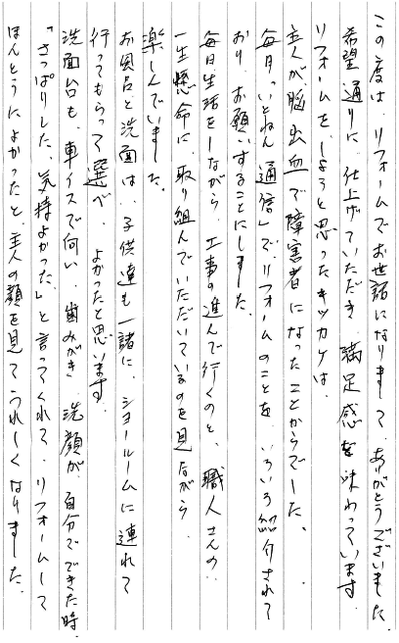 この度は、リフォームでお世話になりまして、ありがとうございました。
希望通りに仕上げていただき、満足感を味わっています。
リフォームをしようと思ったキッカケは、
主人が脳出血で障害者になったことからでした。
毎月「いとねん通信」で、リフォームのことを、いろいろ紹介されて
おり、お願いすることにしました。
毎日生活をしながら、工事の進んで行くのと、職人さんの
一生懸命に取り組んでいただいているのを見ながら、
楽しんでいました。
お風呂と洗面は、子供達も一諸に、ショールームに連れて
行ってもらって選べ、よかったと思います。
洗面台も、車イスで向い、歯みがき、洗顔が、自分でできた時、
「さっぱりした、気持よかった。」と言ってくれて、リフォームして
ほんとうによかったと、主人の顔を見てうれしくなりました。